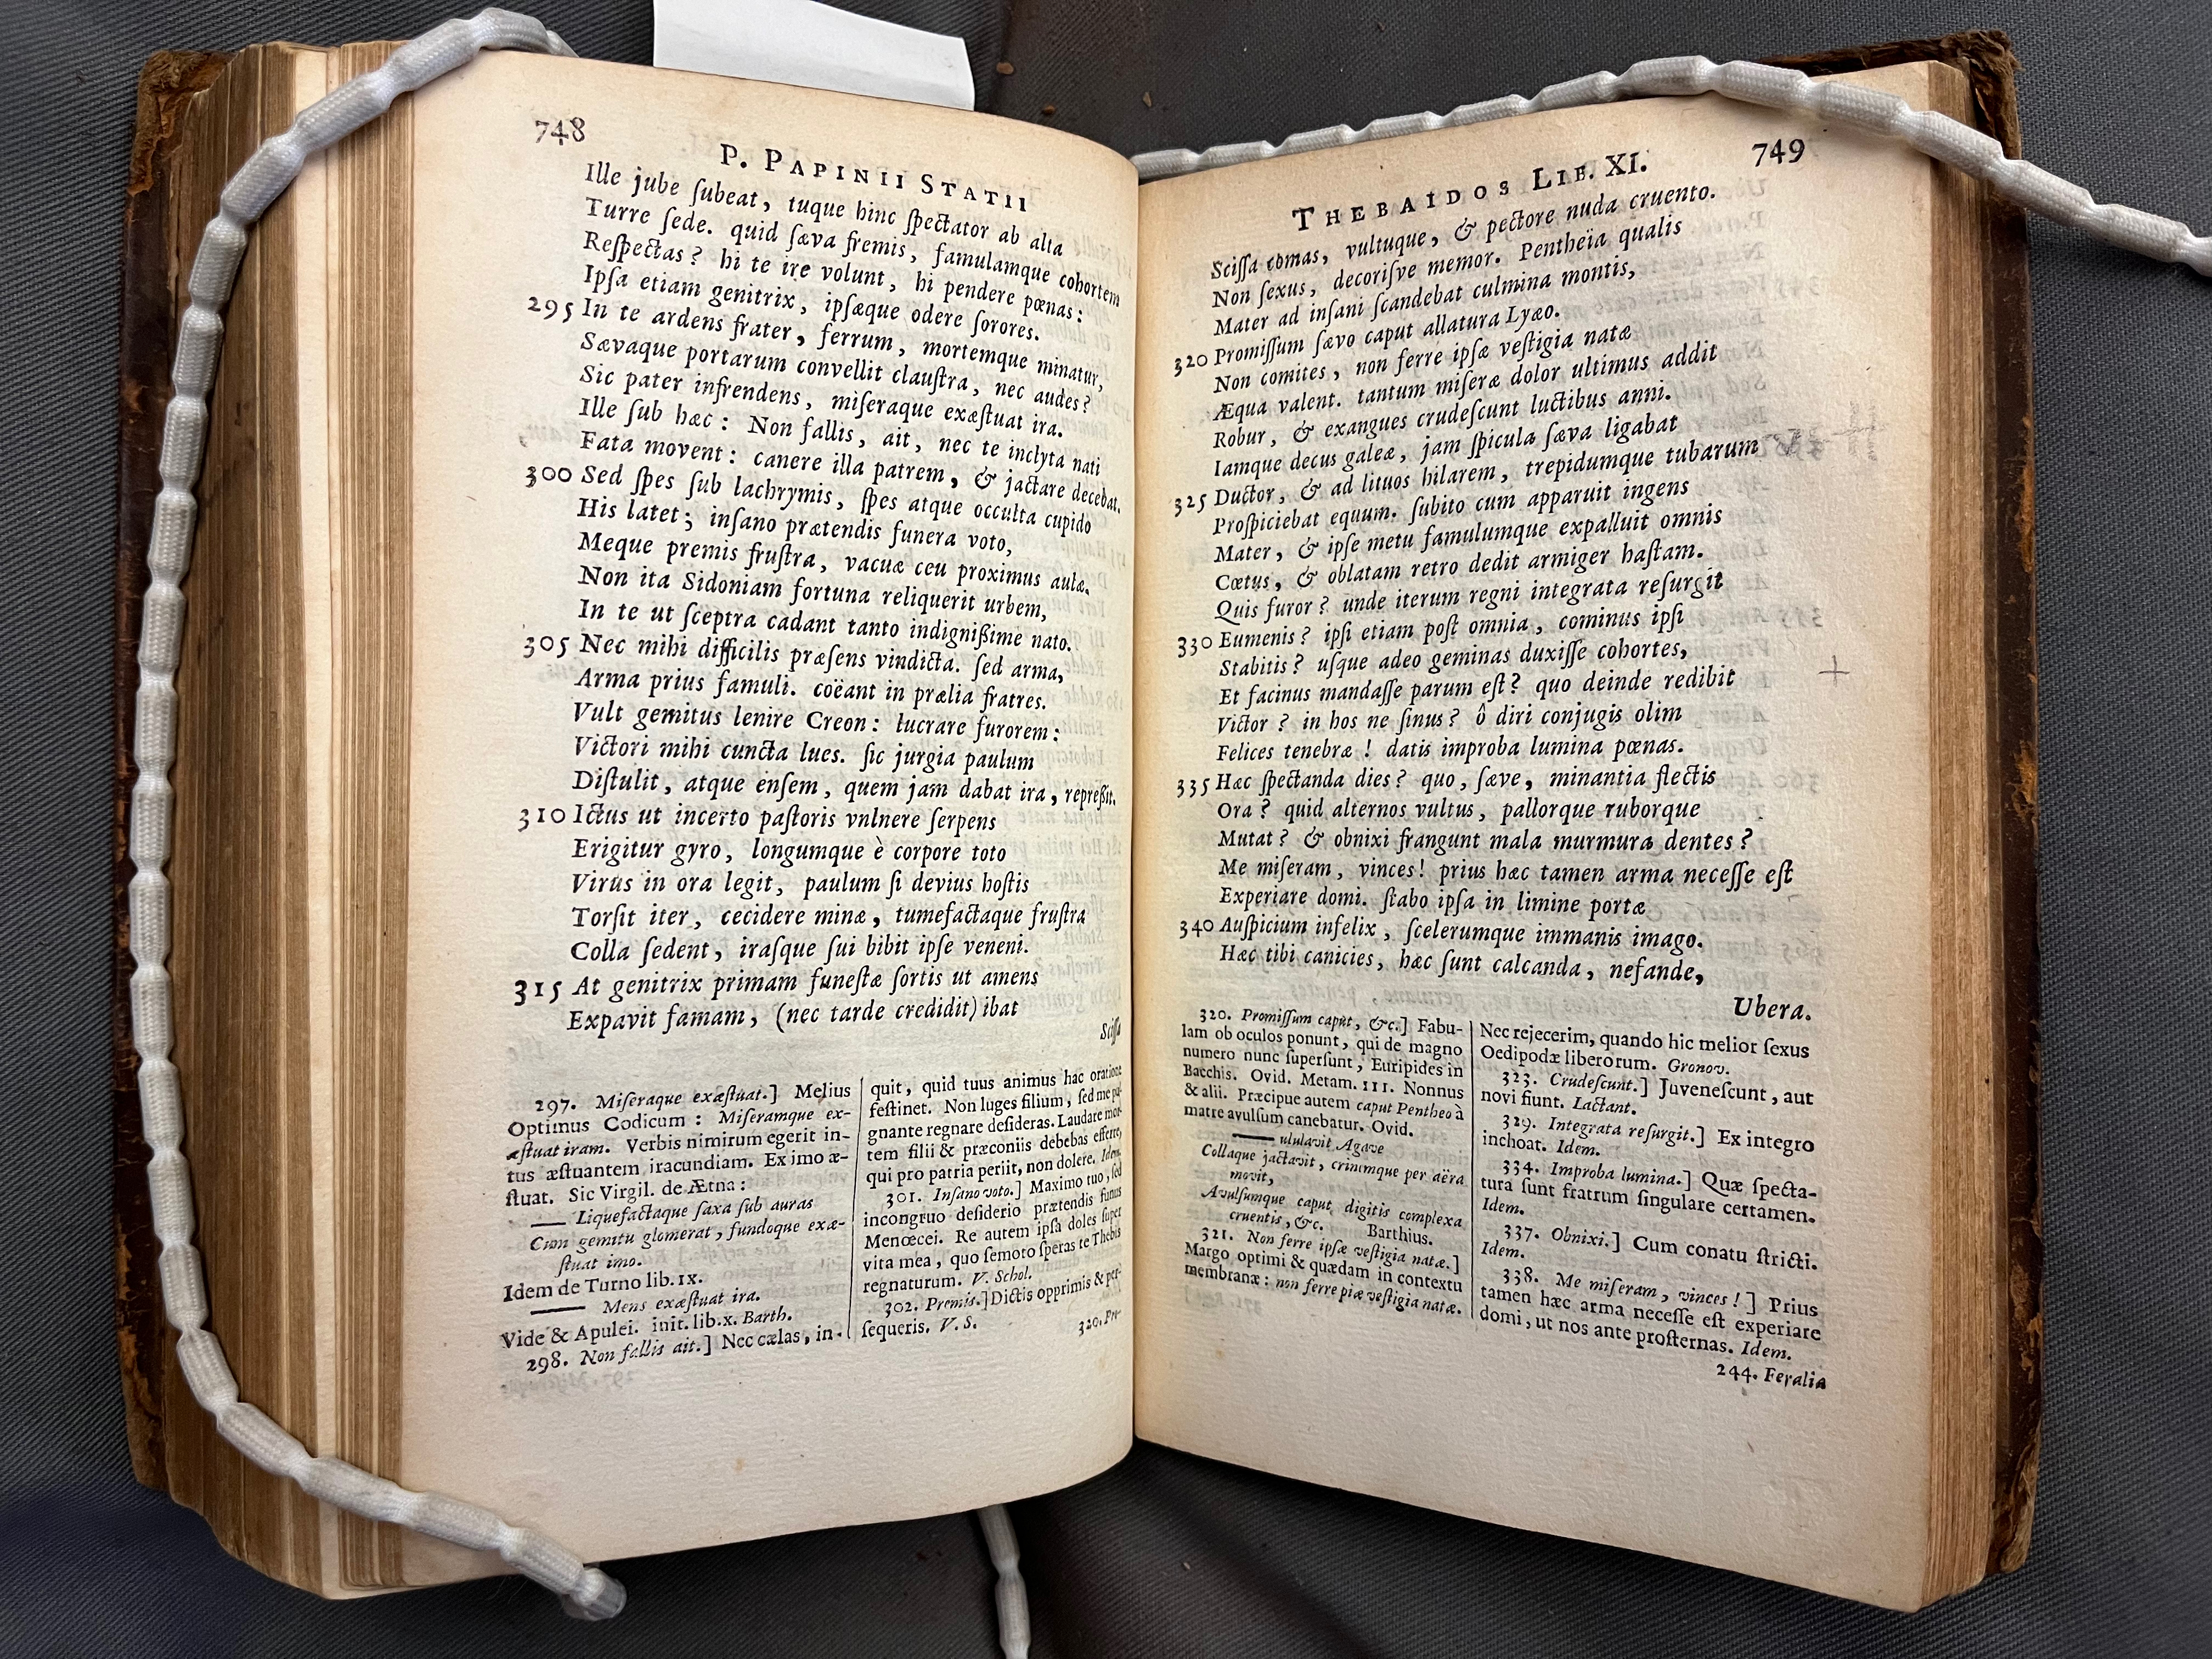 748
P. PAPINII STATII
Ille jube ſubeat, tuque hinc ſpectator ab alta
Turre ſede. quid ſæva fremis, famulamque cohortem
Reſpectas? hi te ire volunt, hi pendere pœnas:
Ipſa etiam genitrix, ipſæque odere ſorores.
295 In te ardens frater, ferrum, mortemque minatur,
Sævaque portarum convellit clauſtra, nec audes?
Sic pater infrendens, miſeraque exæſtuat ira.
Ille ſub hæc: Non fallis, ait, nec te inclyta nati
Fata movent: canere illa patrem, & jactare decebat.
300 Sed ſpes ſub lachrymis, ſpes atque occulta cupido
His latet; inſano prætendis funera voto,
Meque premis fruſtra, vacuæ ceu proximus aulæ.
Non ita Sidoniam fortuna reliquerit urbem,
In te ut ſceptra cadant tanto indignißime nato.
305 Nec mihi difficilis præſens vindicta. ſed arma,
Arma prius famuli. coëant in prælia fratres.
Vult gemitus lenire Creon: lucrare furorem:
Victori mihi cuncta lues. ſic jurgia paulum
Diſtulit, atque enſem, quem jam dabat ira, repreßit.
310 Ictus ut incerto paſtoris vnlnere ſerpens
Erigitur gyro, longumque è corpore toto
Virus in ora legit, paulum ſi devius hoſtis
Torſit iter, cecidere minæ, tumefactaque fruſtra
Colla ſedent, iraſque ſui bibit ipſe veneni.
315 At genitrix primam funeſtæ ſortis ut amens
Expavit famam, (nec tarde credidit) ibat
Sciſſa
297. Miſeraque exæſtuat.] Melius
Optimus Codicum: Miſeramque ex-
æſtuat iram. Verbis nimirum egerit in-
tus æſtuantem iracundiam. Ex imo æ-
ſtuat. Sic Virgil. de Ætna:
— Liquefactaque ſaxa ſub auras
Cum gemitu glomerat, fundoque exæ-
ſtuat imo.
Idem de Turno lib. IX.
— Mens exæſtuat ira.
Vide & Apulei. init. lib. x. Barth.
298. Non fallis ait.] Nec cælas, in-
quit, quid tuus animus hac oratione
feſtinet. Non luges filium, ſed me pu-
gnante regnare deſideras. Laudare mor-
tem filii & præconiis debebas efferre,
qui pro patria periit, non dolere. Idem.
301. Inſano voto.] Maximo tuo, ſed
incongruo deſiderio prætendis funus
Menœcei. Re autem ipſa doles ſuper
vita mea, quo ſemoto ſperas te Thebis
regnaturum. V. Schol.
302. Premis.] Dictis opprimis & per-
ſequeris. V. S.
320. Pro-
749
THEBAIDOS LIB. XI.
Sciſſa comas, vultuque, & pectore nuda cruento.
Non ſexus, decoriſve memor. Pentheïa qualis
Mater ad inſani ſcandebat culmina montis,
320 Promiſſum ſævo caput allatura Lyæo.
Non comites, non ferre ipſæ veſtigia natæ
Æqua valent. tantum miſeræ dolor ultimus addit
Robur, & exangues crudeſcunt luctibus anni.
Iamque decus galeæ, jam ſpicula ſæva ligabat
325 Ductor, & ad lituos hilarem, trepidumque tubarum
Proſpiciebat equum. ſubito cum apparuit ingens
Mater, & ipſe metu famulumque expalluit omnis
Cœtus, & oblatam retro dedit armiger haſtam.
Quis furor? unde iterum regni integrata reſurgit
330 Eumenis? ipſi etiam poſt omnia, cominus ipſi
Stabitis? uſque adeo geminas duxiſſe cohortes,
Et facinus mandaſſe parum eſt? quo deinde redibit
Victor? in hos ne ſinus? ô diri conjugis olim
Felices tenebræ! datis improba lumina pœnas.
335 Hæc ſpectanda dies? quo, ſæve, minantia flectis
Ora? quid alternos vultus, pallorque ruborque
Mutat? & obnixi frangunt mala murmura dentes?
Me miſeram, vinces! prius hæc tamen arma neceſſe eſt
Experiare domi. ſtabo ipſa in limine portæ
340 Auſpicium infelix, ſcelerumque immanis imago.
Hæc tibi canicies, hæc ſunt calcanda, nefande,
Ubera.
320. Promiſſum caput, &c.] Fabu-
lam ob oculos ponunt, qui de magno
numero nunc ſuperſunt, Euripides in
Bacchis. Ovid. Metam. III. Nonnus
& alii. Præcipue autem caput Pentheo à
matre avulſum canebatur. Ovid.
— ululavit Agave
Collaque jactavit, crinemque per aëra
movit,
Avulſumque caput digitis complexa
cruentis, &c. Barthius.
321. Non ferre ipſæ veſtigia natæ.]
Margo optimi & quædam in contextu
membranæ: non ferre piæ veſtigia natæ.
Nec rejecerim, quando hic melior ſexus
Oedipodæ liberorum. Gronov.
323. Crudeſcunt.] Juveneſcunt, aut
novi fiunt. Lactant.
329. Integrata reſurgit.] Ex integro
inchoat. Idem.
334. Improba lumina.] Quæ ſpecta-
tura ſunt fratrum ſingulare certamen.
Idem.
337. Obnixi.] Cum conatu ſtricti.
Idem.
338. Me miſeram, vinces!] Prius
tamen hæc arma neceſſe eſt experiare
domi, ut nos ante proſternas. Idem.
244. Feralia